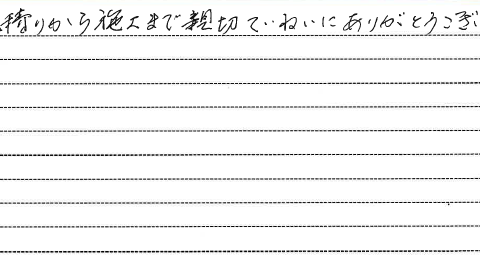 積りから施工まで親切ていねいにありがとうござ